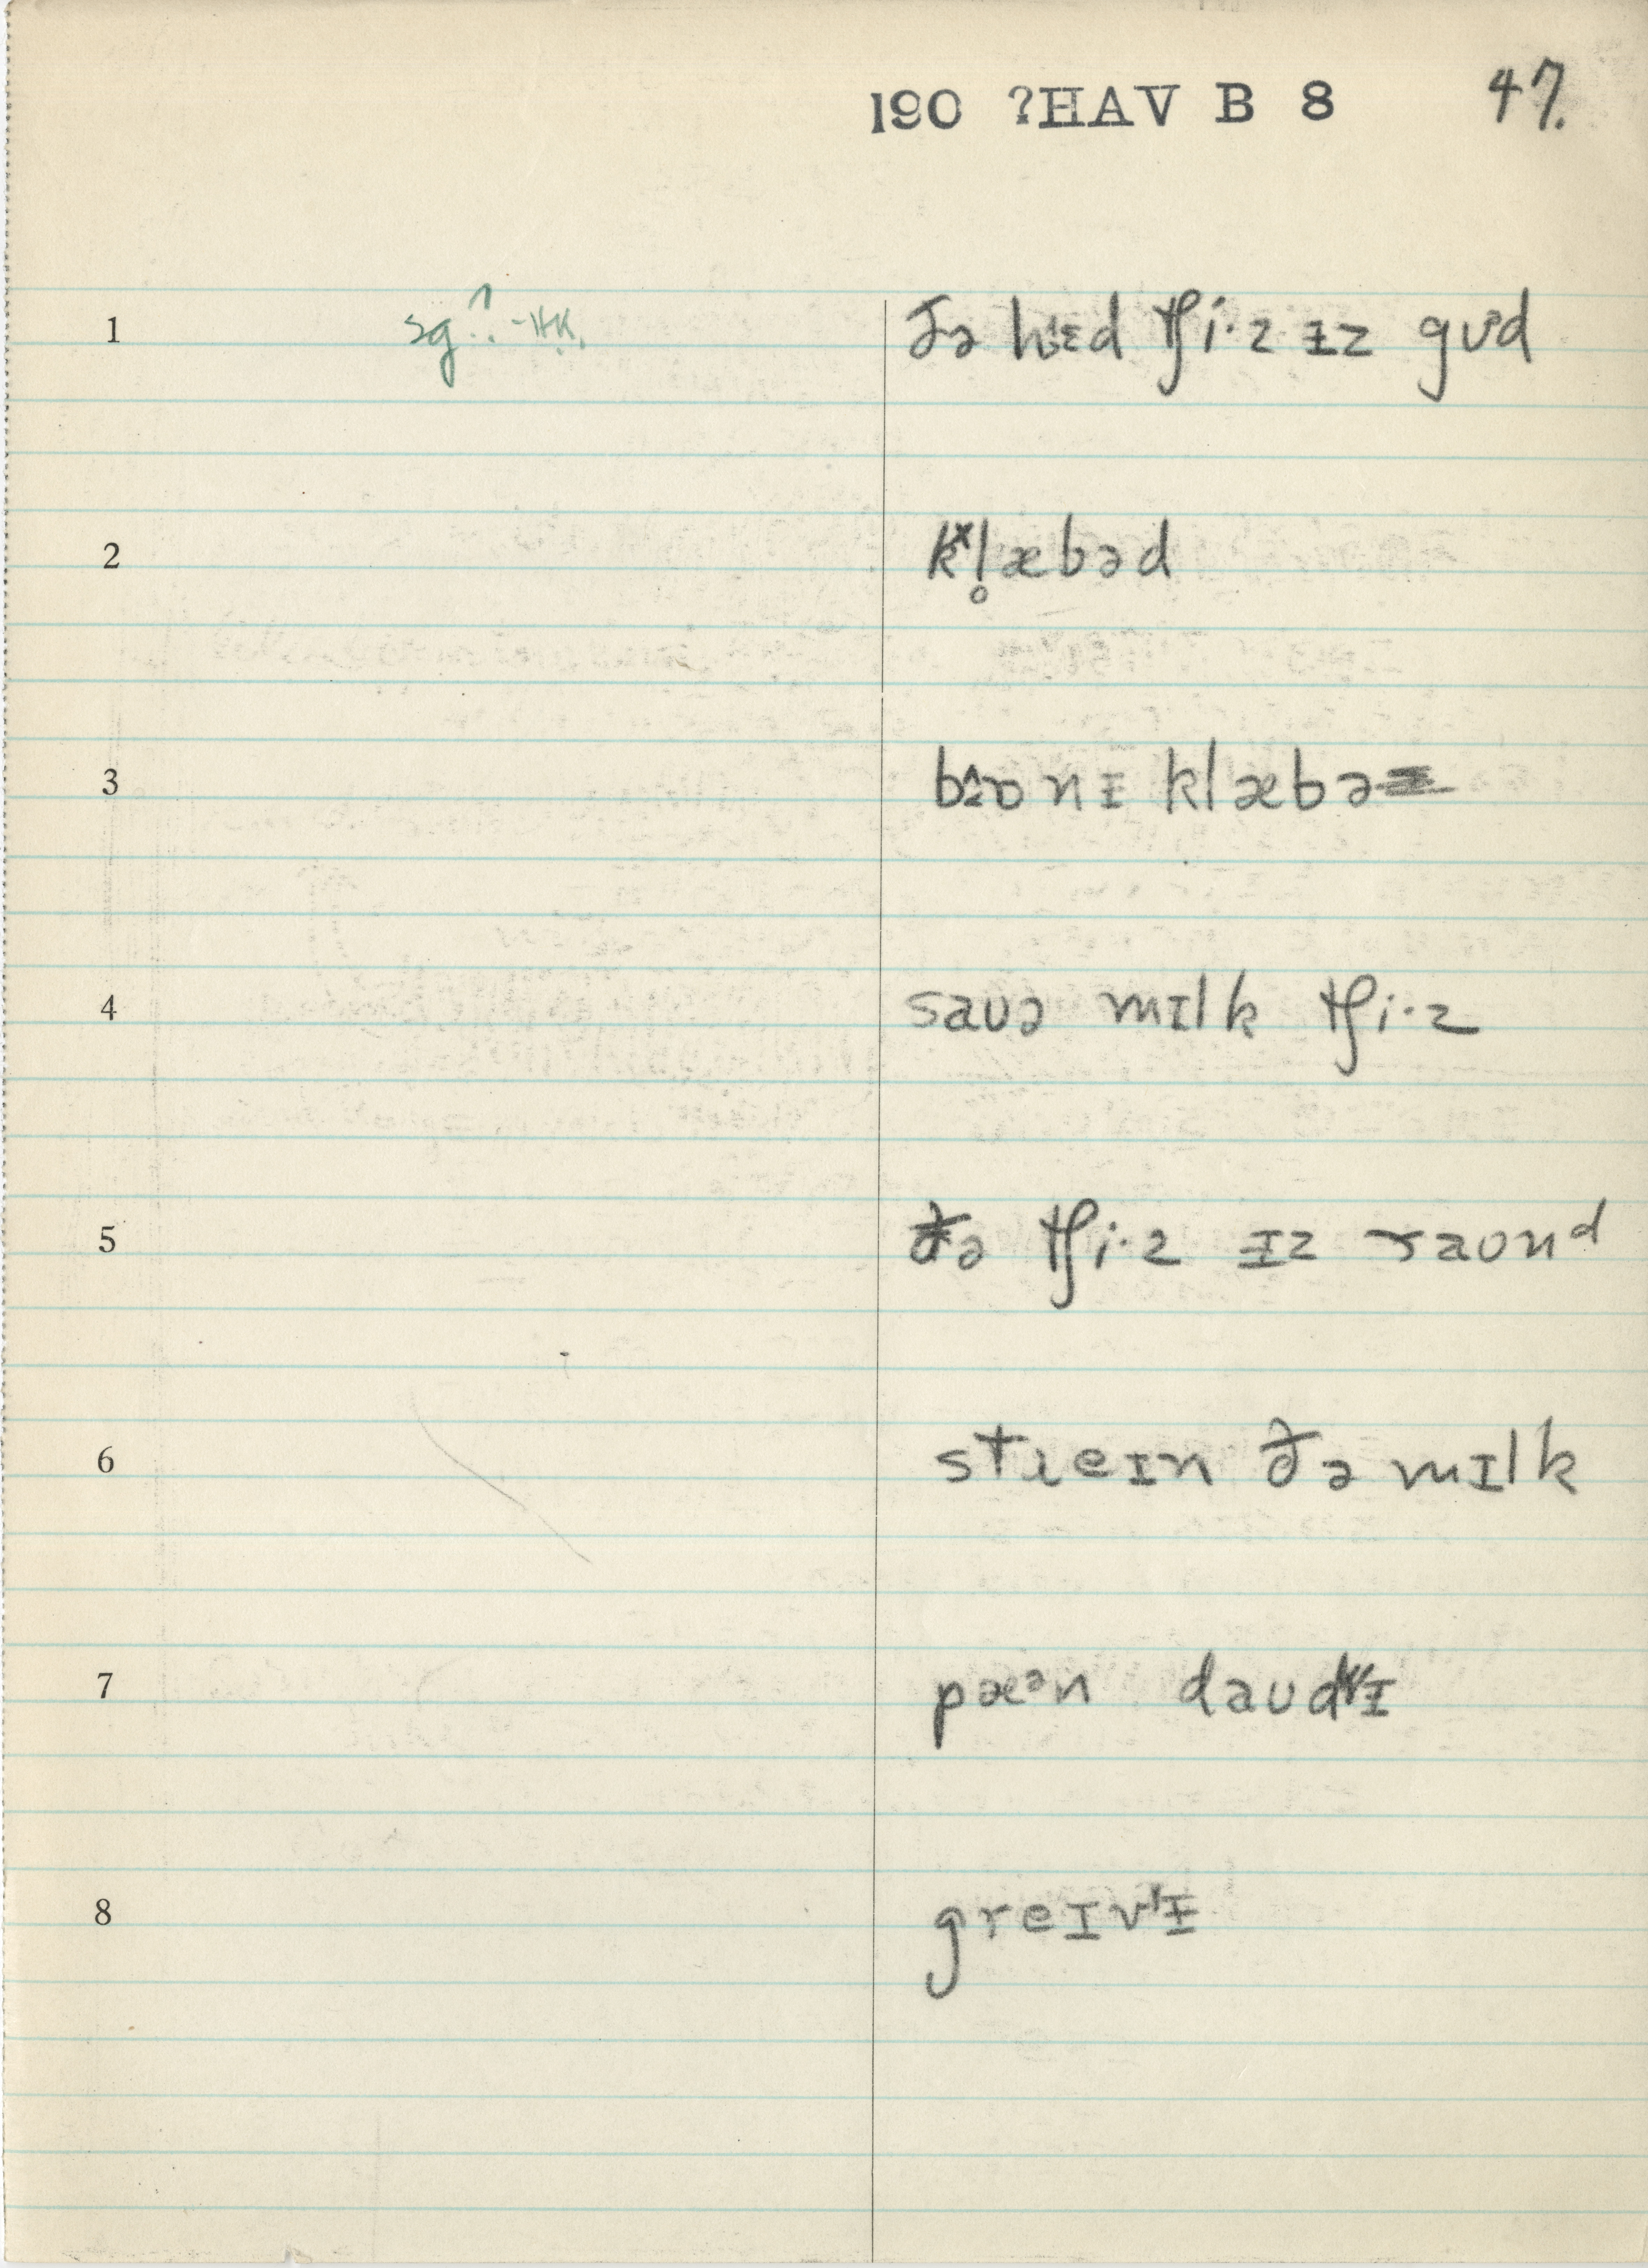 190 ?HAV B 8 47.
1 sg? -HK. ðə hɛd tʃi·z ɪz gʊd
2 kˣl̥æbəd
3 nᵻ klæbə
4 saʊə mɪlk tʃi·z
5 ðə tʃi·z ᵻz raʊnᵈ
6 streɪn ðə mɪlk
7 pæᵊn daʊdᵻ
8 greɪvᵻ